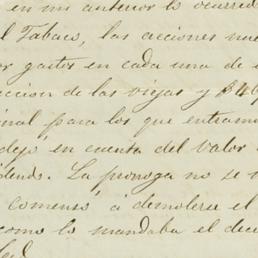 en mi anterior lo ocurrid
l Tabaco, las acciones nue
or gastos en cada una de
ccion de las vigas y $46
inal para los que entram
dejo en cuenta del valor
idendo. La proroga no se
comensó á demolerse el
como lo mandaba el dec